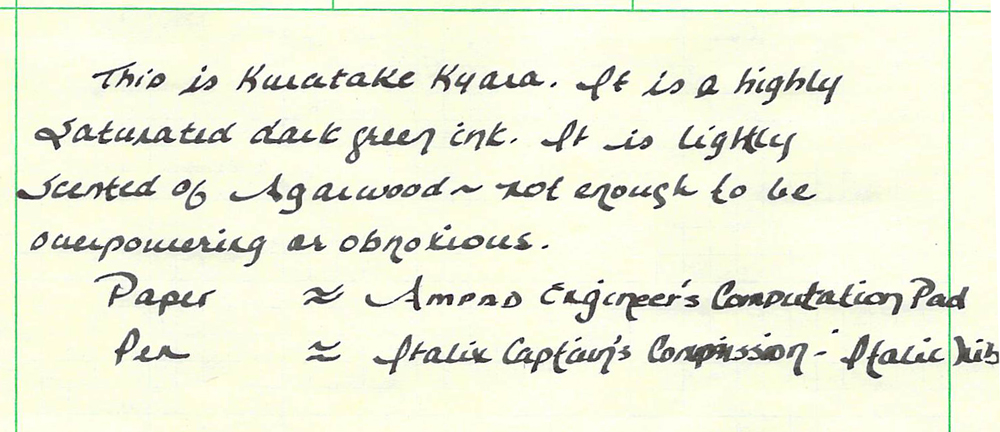 This is Kuratake Kyara. It is a highly
saturated dark green ink. It is lightly
scented of Agarwood ~ not enough to be
overpowering or obnoxious.
Paper ≈ Ampad Engineer's Computation Pad
Pen ≈ Italix Captain's Commission - Italic nib